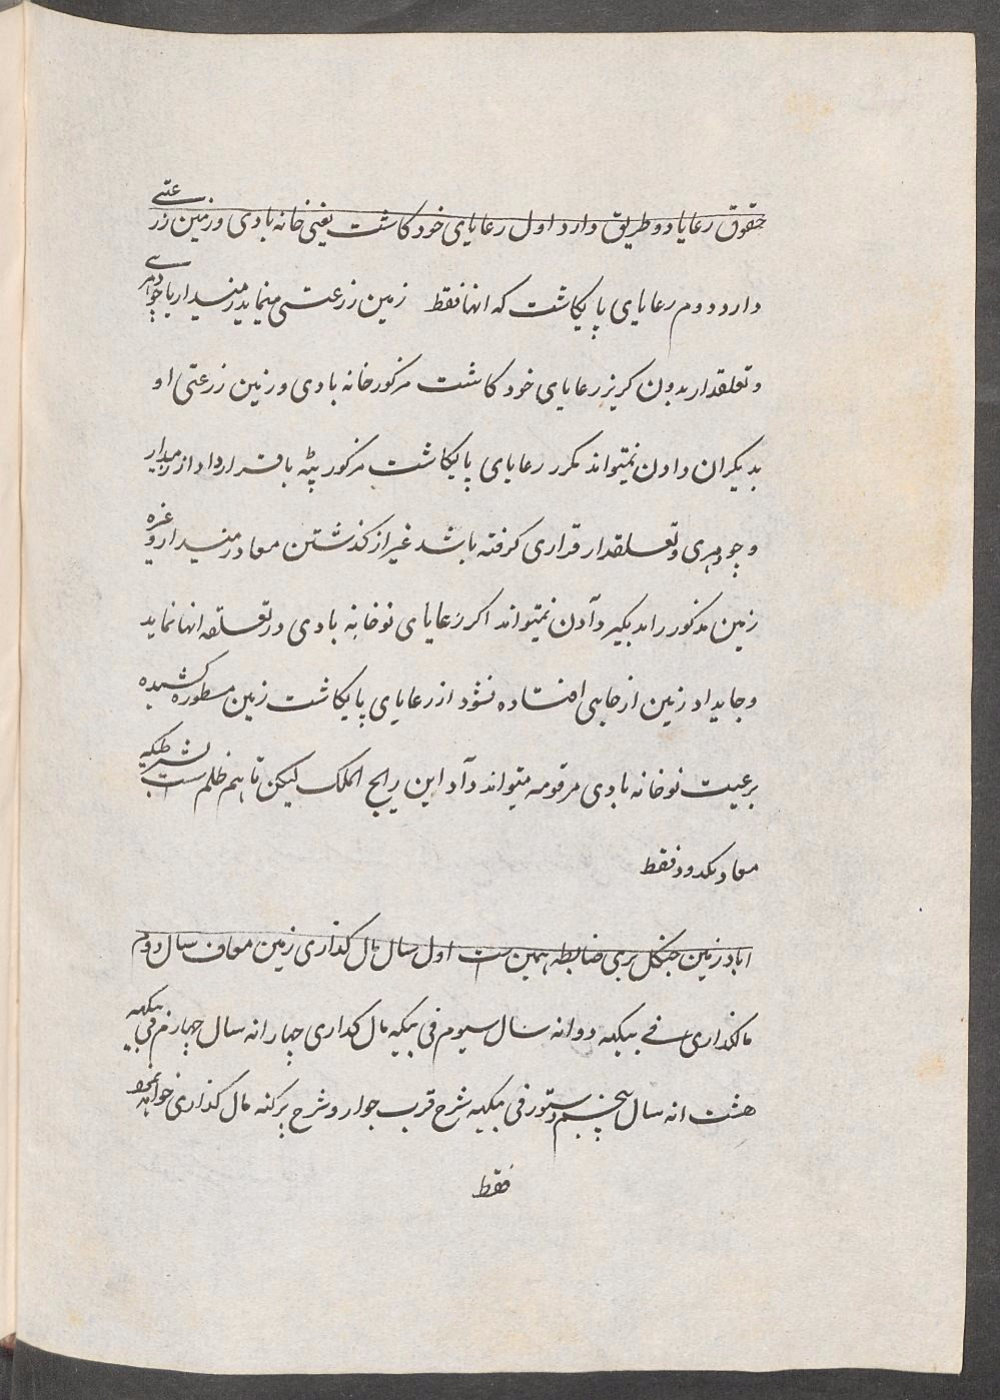 حقوق رعایا دو طریق دارد اول رعایای خود کاشت یعنی خانه بادی و زمین زرعتی
دارد دوم رعایای پایکاشت که انها فقط زمین زرعتی مینماید زمیندار یا چودهری
و تعلقدار بدون کریز رعایای خود کاشت مذکور خانه بادی و زمین زرعتی او
بدیکران دادن نمیتواند مکرر رعایای پایکاشت مذکور پته با قرارداد از زمیدار
و چودهری و تعلقدار قراری کرفته باشد غیر از کذشتن معاد زمیندار وغره
زمین مذکور را بدیکیر دآدن نمیتواند اکر رعایای نو خانه بادی در تعلقه انها نماید
و جایداد زمین از جاهی افتاده نشود از رعایای پایکاشت زمین مسطوره کشیده
برعیت نو خانه بادی مرقومه میتواند دآد این رایج الملک لیکن تا هم ظلم ست بشرطیکه
معاد نکدود فقط
اباد زمین جنکل بری ضابطه همین ست اول سال مال کذاری زمین معاف سال دوم
مالکذاری فی بیکهه دو انه سال سیوم فی بیکهه مال کذاری چهار انه سال چهارم فی بیکهه
هشت انه سال پنجم دستور فی بیکهه شرح قرب جوار و شرح پرکنه مال کذاری خواهد نمود
فقط